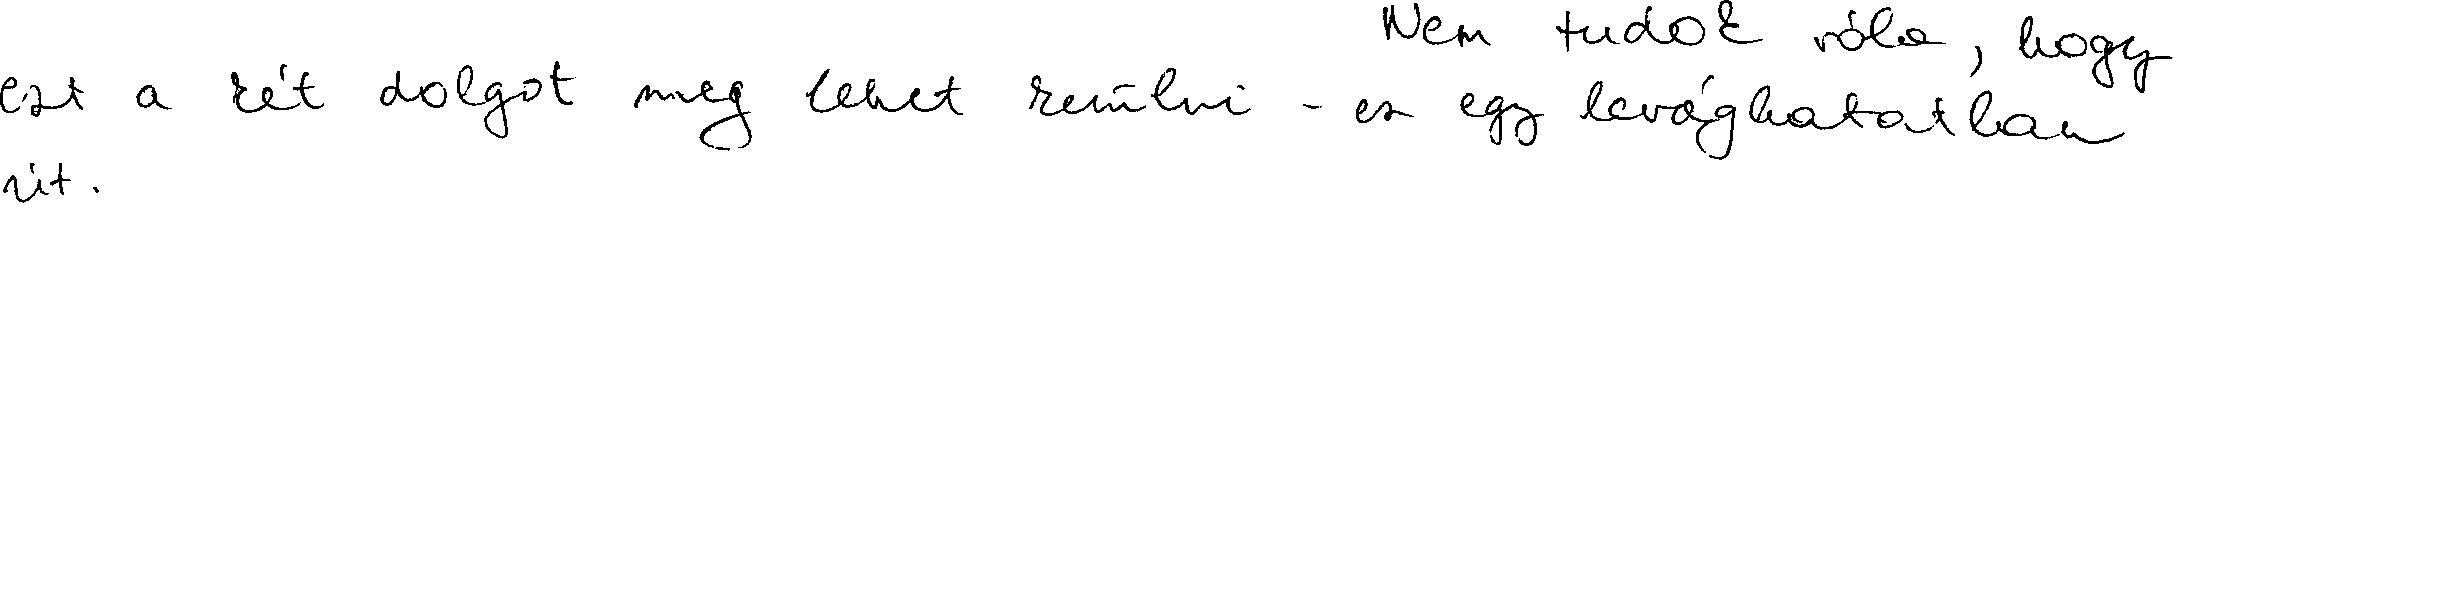 Nem tudok róla, hogy
ezt a két dolgot meg lehet kerülni - ez egy levághatatlan
út.